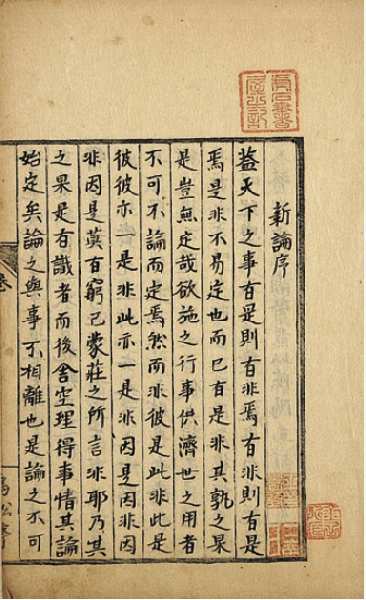 新論序
葢天下之事有是則有非焉有非則有是
焉是非不易定也而已有是非其孰之果
是豈無定哉欲施之行事供濟世之用者
不可不論而定焉然而非彼是此非此是
彼彼亦一是非此亦一是非因是因非因
非因是莫有窮已蒙莊之所言非耶乃其
之果是有識者而後舍空理得事情其論
始定矣論之與事不相離也是論之不可
卷